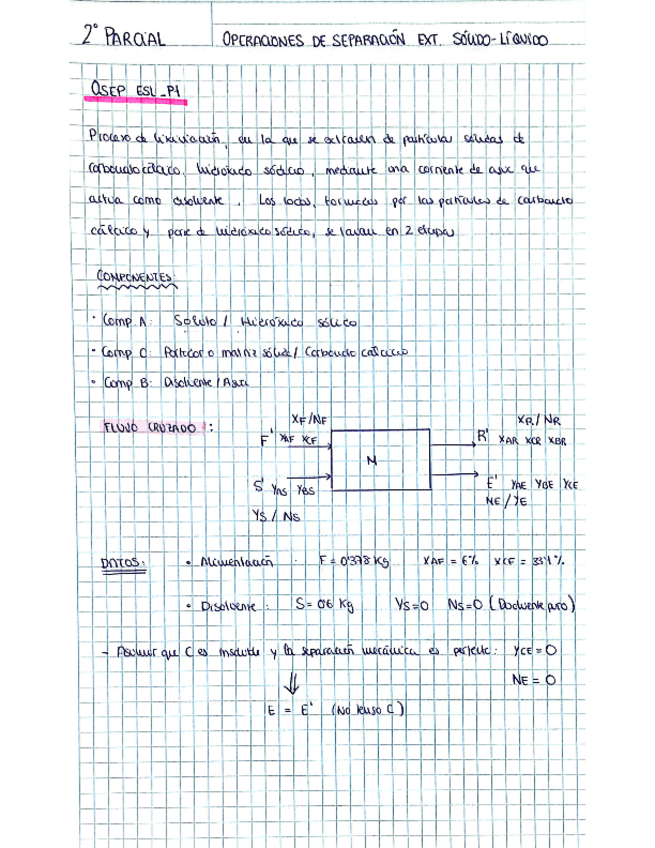 2º PARCIAL
OPERACIONES DE SEPARACIÓN EXT. SÓLIDO-LÍQUIDO
OSEP ESL_P1
Proceso de lixiviación, en la que se extraen de partículas sólidas de
carbonato cálcico, hidróxido sódico, mediante una corriente de agua que
actúa como disolvente. Los lodos, formados por las partículas de carbonato
cálcico y parte de hidróxido sódico, se lavan en 2 etapas
COMPONENTES:
· Comp A: Soluto / Hidróxido sódico
· Comp C: Portador o matriz sólida / Carbonato cálcico
· Comp B: Disolvente / Agua
FLUJO CRUZADO:
XF/NF
F' XAF XCF
N
XR/NR
R' XAR XCR XBR
S' YAS YBS
YS / NS
E' YAE YBE YCE
NE/YE
DATOS: · Alimentación: F = 0'378 Kg XAF = 6% XCF = 33'1%
· Disolvente: S = 0'6 Kg YS=0 NS=0 (Disolvente puro)
- Asumir que C es insoluble y la separación mecánica es perfecta: YCE = 0
NE = 0
⇓
E = E' (No C)